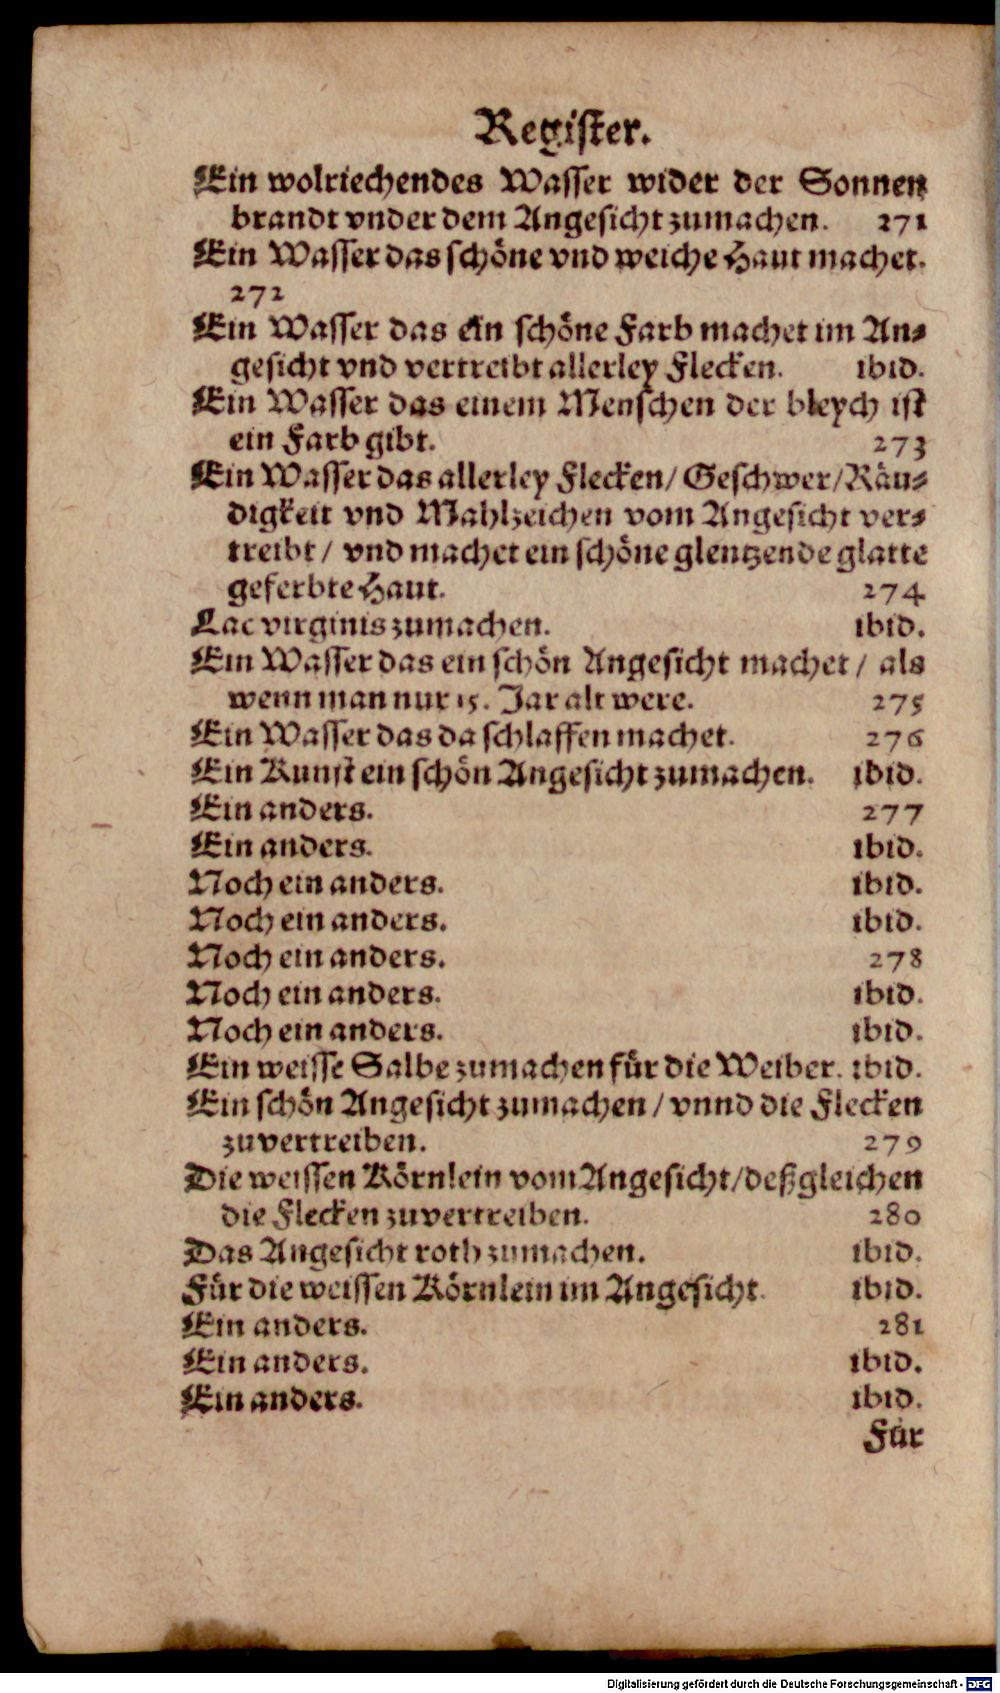 Register.
Ein wolriechendes Wasser wider der Sonnen
brandt vnder dem Angesicht zumachen. 271
Ein Wasser das schöne vnd weiche Haut machet.
272
Ein Wasser das ein schöne Farb machet im An⸗
gesicht vnd vertreibt allerley Flecken. ibid.
Ein Wasser das einem Menschen der bleych ist
ein Farb gibt. 273
Ein Wasser das allerley Flecken/ Geschwer/ Räu⸗
digkeit vnd Mahlzeichen vom Angesicht ver⸗
treibt/ vnd machet ein schöne glentzende glatte
geferbte Haut. 274
Lac virginis zumachen. ibid.
Ein Wasser das ein schön Angesicht machet/ als
wenn man nur 15. Jar alt were. 275
Ein Wasser das da schlaffen machet. 276
Ein Kunst ein schön Angesicht zumachen. ibid.
Ein anders. 277
Ein anders. ibid.
Noch ein anders. ibid.
Noch ein anders. ibid.
Noch ein anders. 278
Noch ein anders. ibid.
Noch ein anders. ibid.
Ein weisse Salbe zumachen für die Weiber. ibid.
Ein schön Angesicht zumachen/ vnnd die Flecken
zuvertreiben. 279
Die weissen Körnlein vom Angesicht/ deßgleichen
die Flecken zuvertreiben. 280
Das Angesicht roth zumachen. ibid.
Für die weissen Körnlein im Angesicht. ibid.
Ein anders. 281
Ein anders. ibid.
Ein anders. ibid.
Für
Digitalisierung gefördert durch die Deutsche Forschungsgemeinschaft - DFG